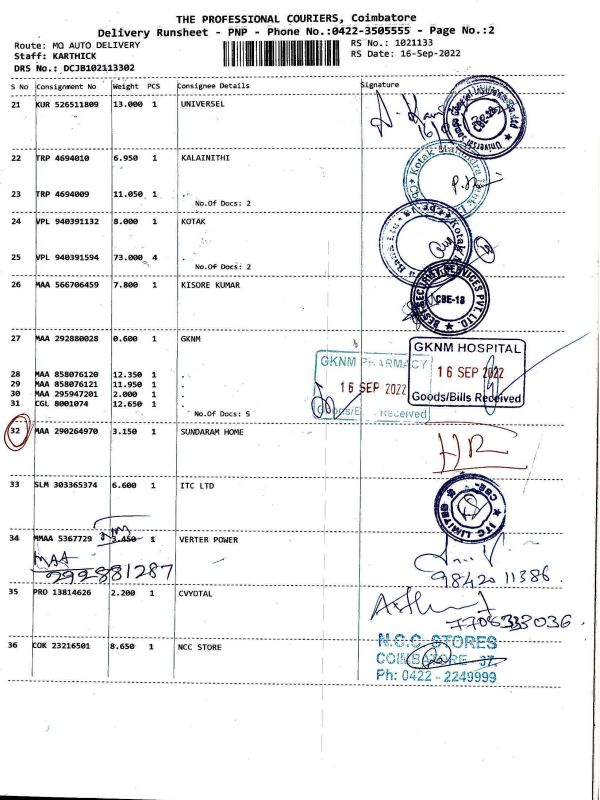 THE PROFESSIONAL COURIERS, Coimbatore
Delivery Runsheet - PNP - Phone No.:0422-3505555 - Page No.:2
Route: MQ AUTO DELIVERY
RS No.: 1021133
Staff: KARTHICK
RS Date: 16-Sep-2022
DRS No.: DCJB102113302
S No Consignment No Weight PCS Consignee Details Signature
21 KUR 526511809 13.000 1 UNIVERSEL
CBE-18
22 TRP 4694010 6.950 1 KALAINITHI
Kotak Mahindra
23 TRP 4694009 11.050 1 .
No.Of Docs: 2
24 VPL 940391132 8.000 1 KOTAK
Kotak
25 VPL 940391594 73.000 4 .
No.Of Docs: 2
26 MAA 566706459 7.800 1 KISORE KUMAR
BEST SECURITY SERVICES PVT. LTD.
CBE-18
27 MAA 292880028 0.600 1 GKNM
GKNM PHARMACY
16 SEP 2022
Goods/Bills Received
GKNM HOSPITAL
16 SEP 2022
Goods/Bills Received
28 MAA 858076120 12.350 1 .
29 MAA 858076121 11.950 1 .
30 MAA 295947201 2.000 1 .
31 CGL 8001074 12.650 1 .
No.Of Docs: 5
32 MAA 290264970 3.150 1 SUNDARAM HOME
HR
33 SLM 303365374 6.600 1 ITC LTD
ITC LIMITED
CBE-
34 MMAA 5367729 3.450 1 VERTER POWER
MAA
292881287
98420 11386.
35 PRO 13814626 2.200 1 CVYOTAL
7708333036.
36 COK 23216501 8.650 1 NCC STORE
N.C.C. STORES
COIMBATORE - 37.
Ph: 0422 - 2249999